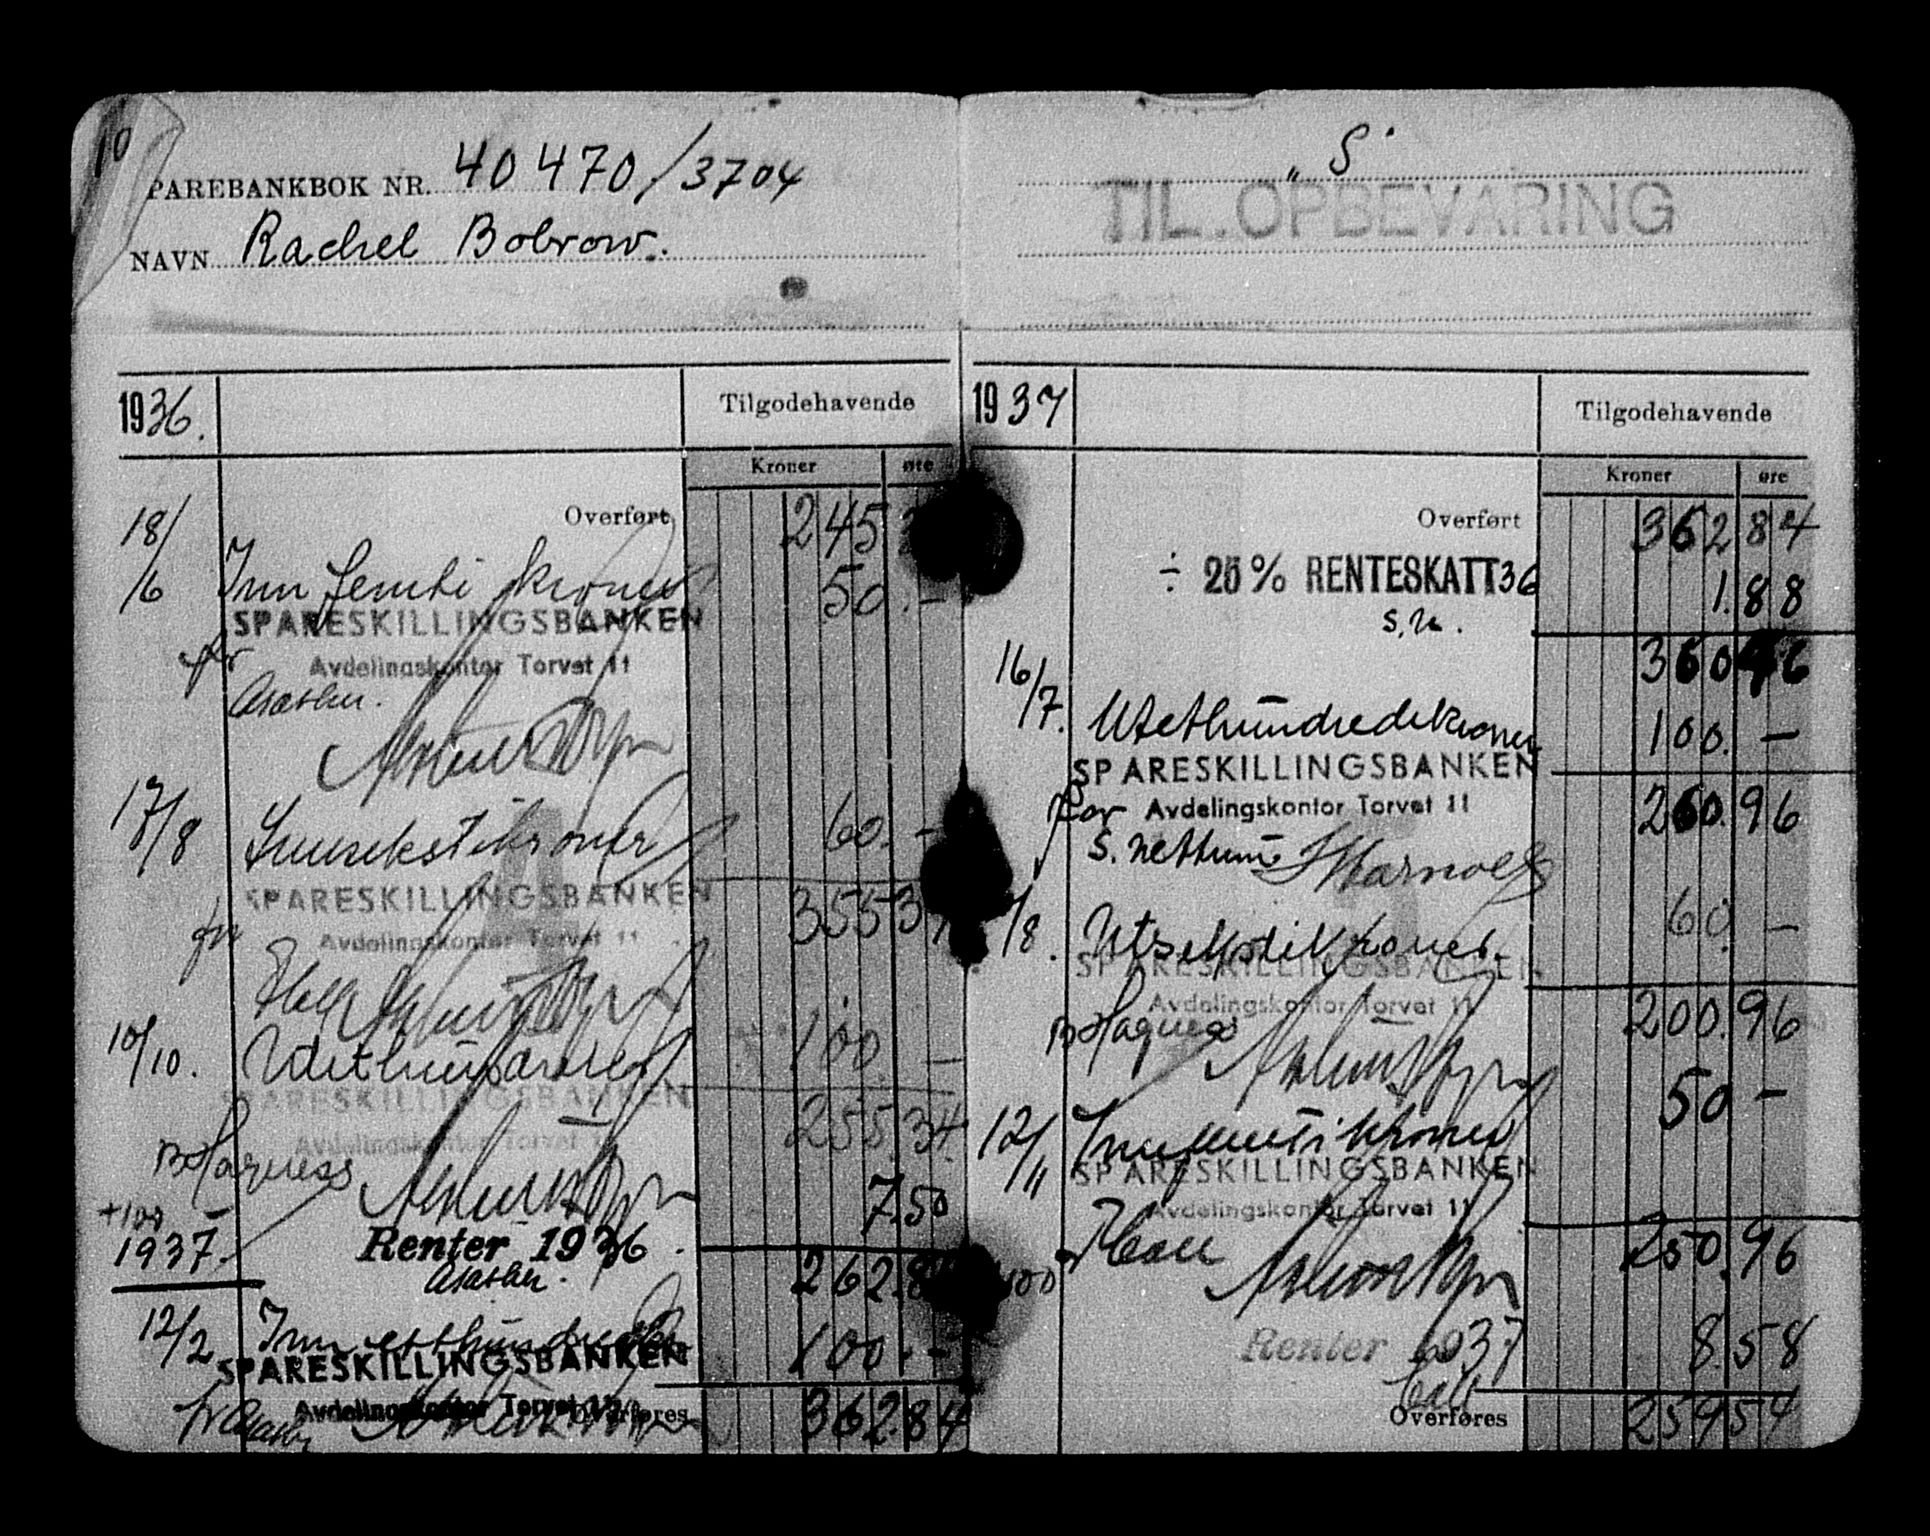 10
PAREBANKBOK NR. 40470/3704
NAVN Rachel Bobrow.
1936.
Tilgodehavende
Kroner øre
Overført 245
18/6 Inn femti kroner 50.-
SPARESKILLINGSBANKEN
Avdelingskontor Torvet 11
17/8 Innsekstikroner 60.-
SPARESKILLINGSBANKEN
Avdelingskontor Torvet 11
355 3
10/10. Utethundrekr 100 -
SPARESKILLINGSBANKEN
Avdelingskontor Torvet 11
255.34
B Hagness
7.50
+100
1937.
Renter 1936.
262.8
12/2 Inn etthundrekr 100.-
SPARESKILLINGSBANKEN
Avdelingskontor Torvet 11
Overføres 362.84
"S"
TIL OPBEVARING
1937
Tilgodehavende
Kroner øre
Overført 362 84
÷ 25 % RENTESKATT 36 1.88
S.N.
360 96
16/7. Utethundredekroner 100. -
SPARESKILLINGSBANKEN
for Avdelingskontor Torvet 11
260.96
S. Nethum
/8. Utsekstikroner. 60. -
SPARESKILLINGSBANKEN
Avdelingskontor Torvet 11
B Hagness
200.96
12/11 Innfemtikroner 50 -
SPARESKILLINGSBANKEN
Avdelingskontor Torvet 11
250.96
100
Renter 1937 8.58
Overføres 259 54